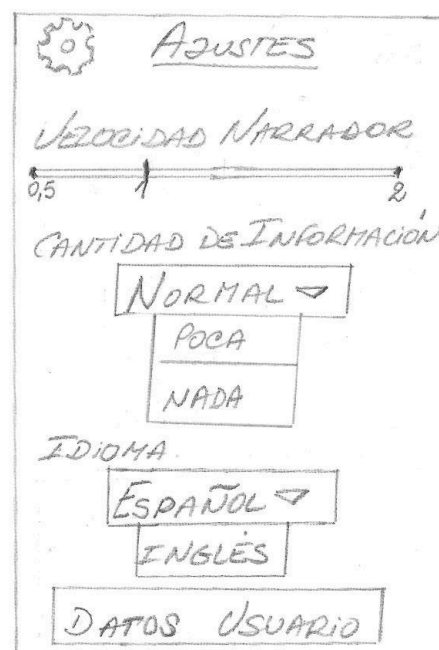 AJUSTES
VELOCIDAD NARRADOR
0,5 1 2
CANTIDAD DE INFORMACIÓN
NORMAL
POCA
NADA
IDIOMA
ESPAÑOL
INGLÉS
DATOS USUARIO